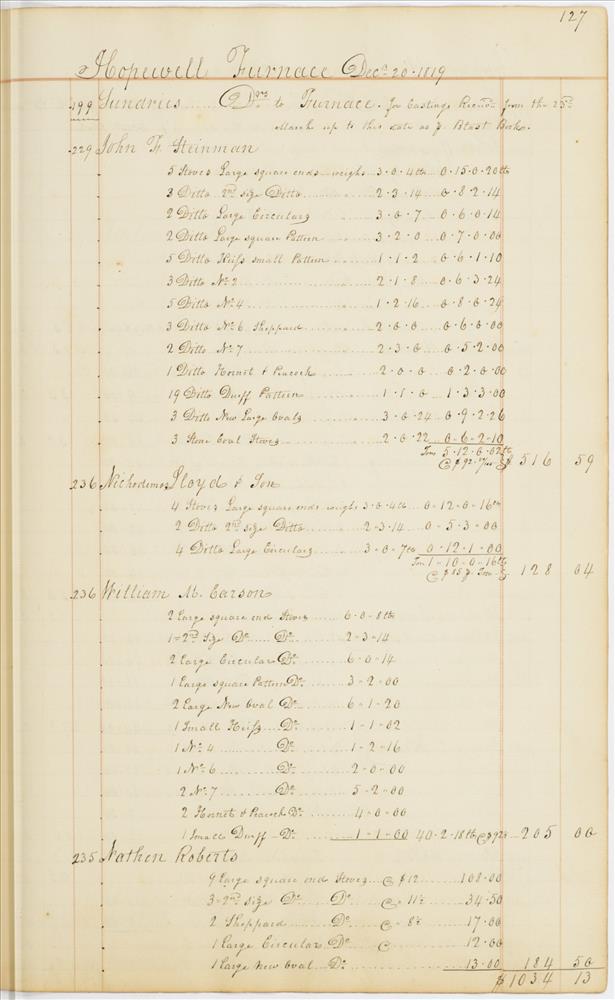 127
Hopewell Furnace Decr 20 - 1819
199 Sundries ...... Drs to Furnace. for Castings Receivd from the 25th
March up to this date as pr Blast Book.
229 John F. Steinman
5 Stoves Large square ends weighs 3-0-4 lb 0-15-0-20 lb
3 Ditto 2nd size Ditto 2-3-14 0-8-2-14
2 Ditto Large Circulars 3-0-7 0-6-0-14
2 Ditto Large square Pattern 3-2-0 0-7-0-00
5 Ditto Heiss small Pattern 1-1-2 0-6-1-10
3 Ditto No 2 2-1-8 0-6-3-24
5 Ditto No 4 1-2-16 0-8-0-24
3 Ditto No 6 Sheppard 2-0-0 0-6-0-00
2 Ditto No 7 2-3-0 0-5-2-00
1 Ditto Hornet & Peacock 2-0-0 0-2-0-00
19 Ditto Duff Pattern 1-1-0 1-3-3-00
3 Ditto New Large Ovals 3-0-24 0-9-2-26
3 Stone Oval Stoves 2-0-22 0-6-2-10
Tons 5-12-0-02 lb
@ $92 516 59
236 Nichodemos Lloyd & Son
4 Stoves Large square ends weighs 3-0-4 lb 0-12-0-16 lb
2 Ditto 2nd size Ditto 2-3-14 0-5-3-00
4 Ditto Large Circulars 3-0-7 lb 0-12-1-00
Ton 1-10-0-16 lb
@ $85 pr Ton 128 04
236 William M. Earson
2 Large square end Stoves 6-0-8 lb
1 = 2nd Size Do Do 2-3-14
2 Large Circulars Do 6-0-14
1 Large square Pattern Do 3-2-00
2 Large New Oval Do 6-1-20
1 Small Heiss Do 1-1-02
1 No 4 Do 1-2-16
1 No 6 Do 2-0-00
2 No 7 Do 5-2-00
2 Hornet & Peacock Do 4-0-00
1 Small Duff Do 1-1-00 40-2-18 lb @ $92 205 00
235 Nathen Roberts
9 Large square end Stoves @ $12 108.00
3 = 2nd size Do Do @ 11½ 34.50
2 Sheppard Do @ 8½ 17.00
1 Large Circular Do @ 12.00
1 Large New Oval Do 13.00 184 50
$ 1034 13